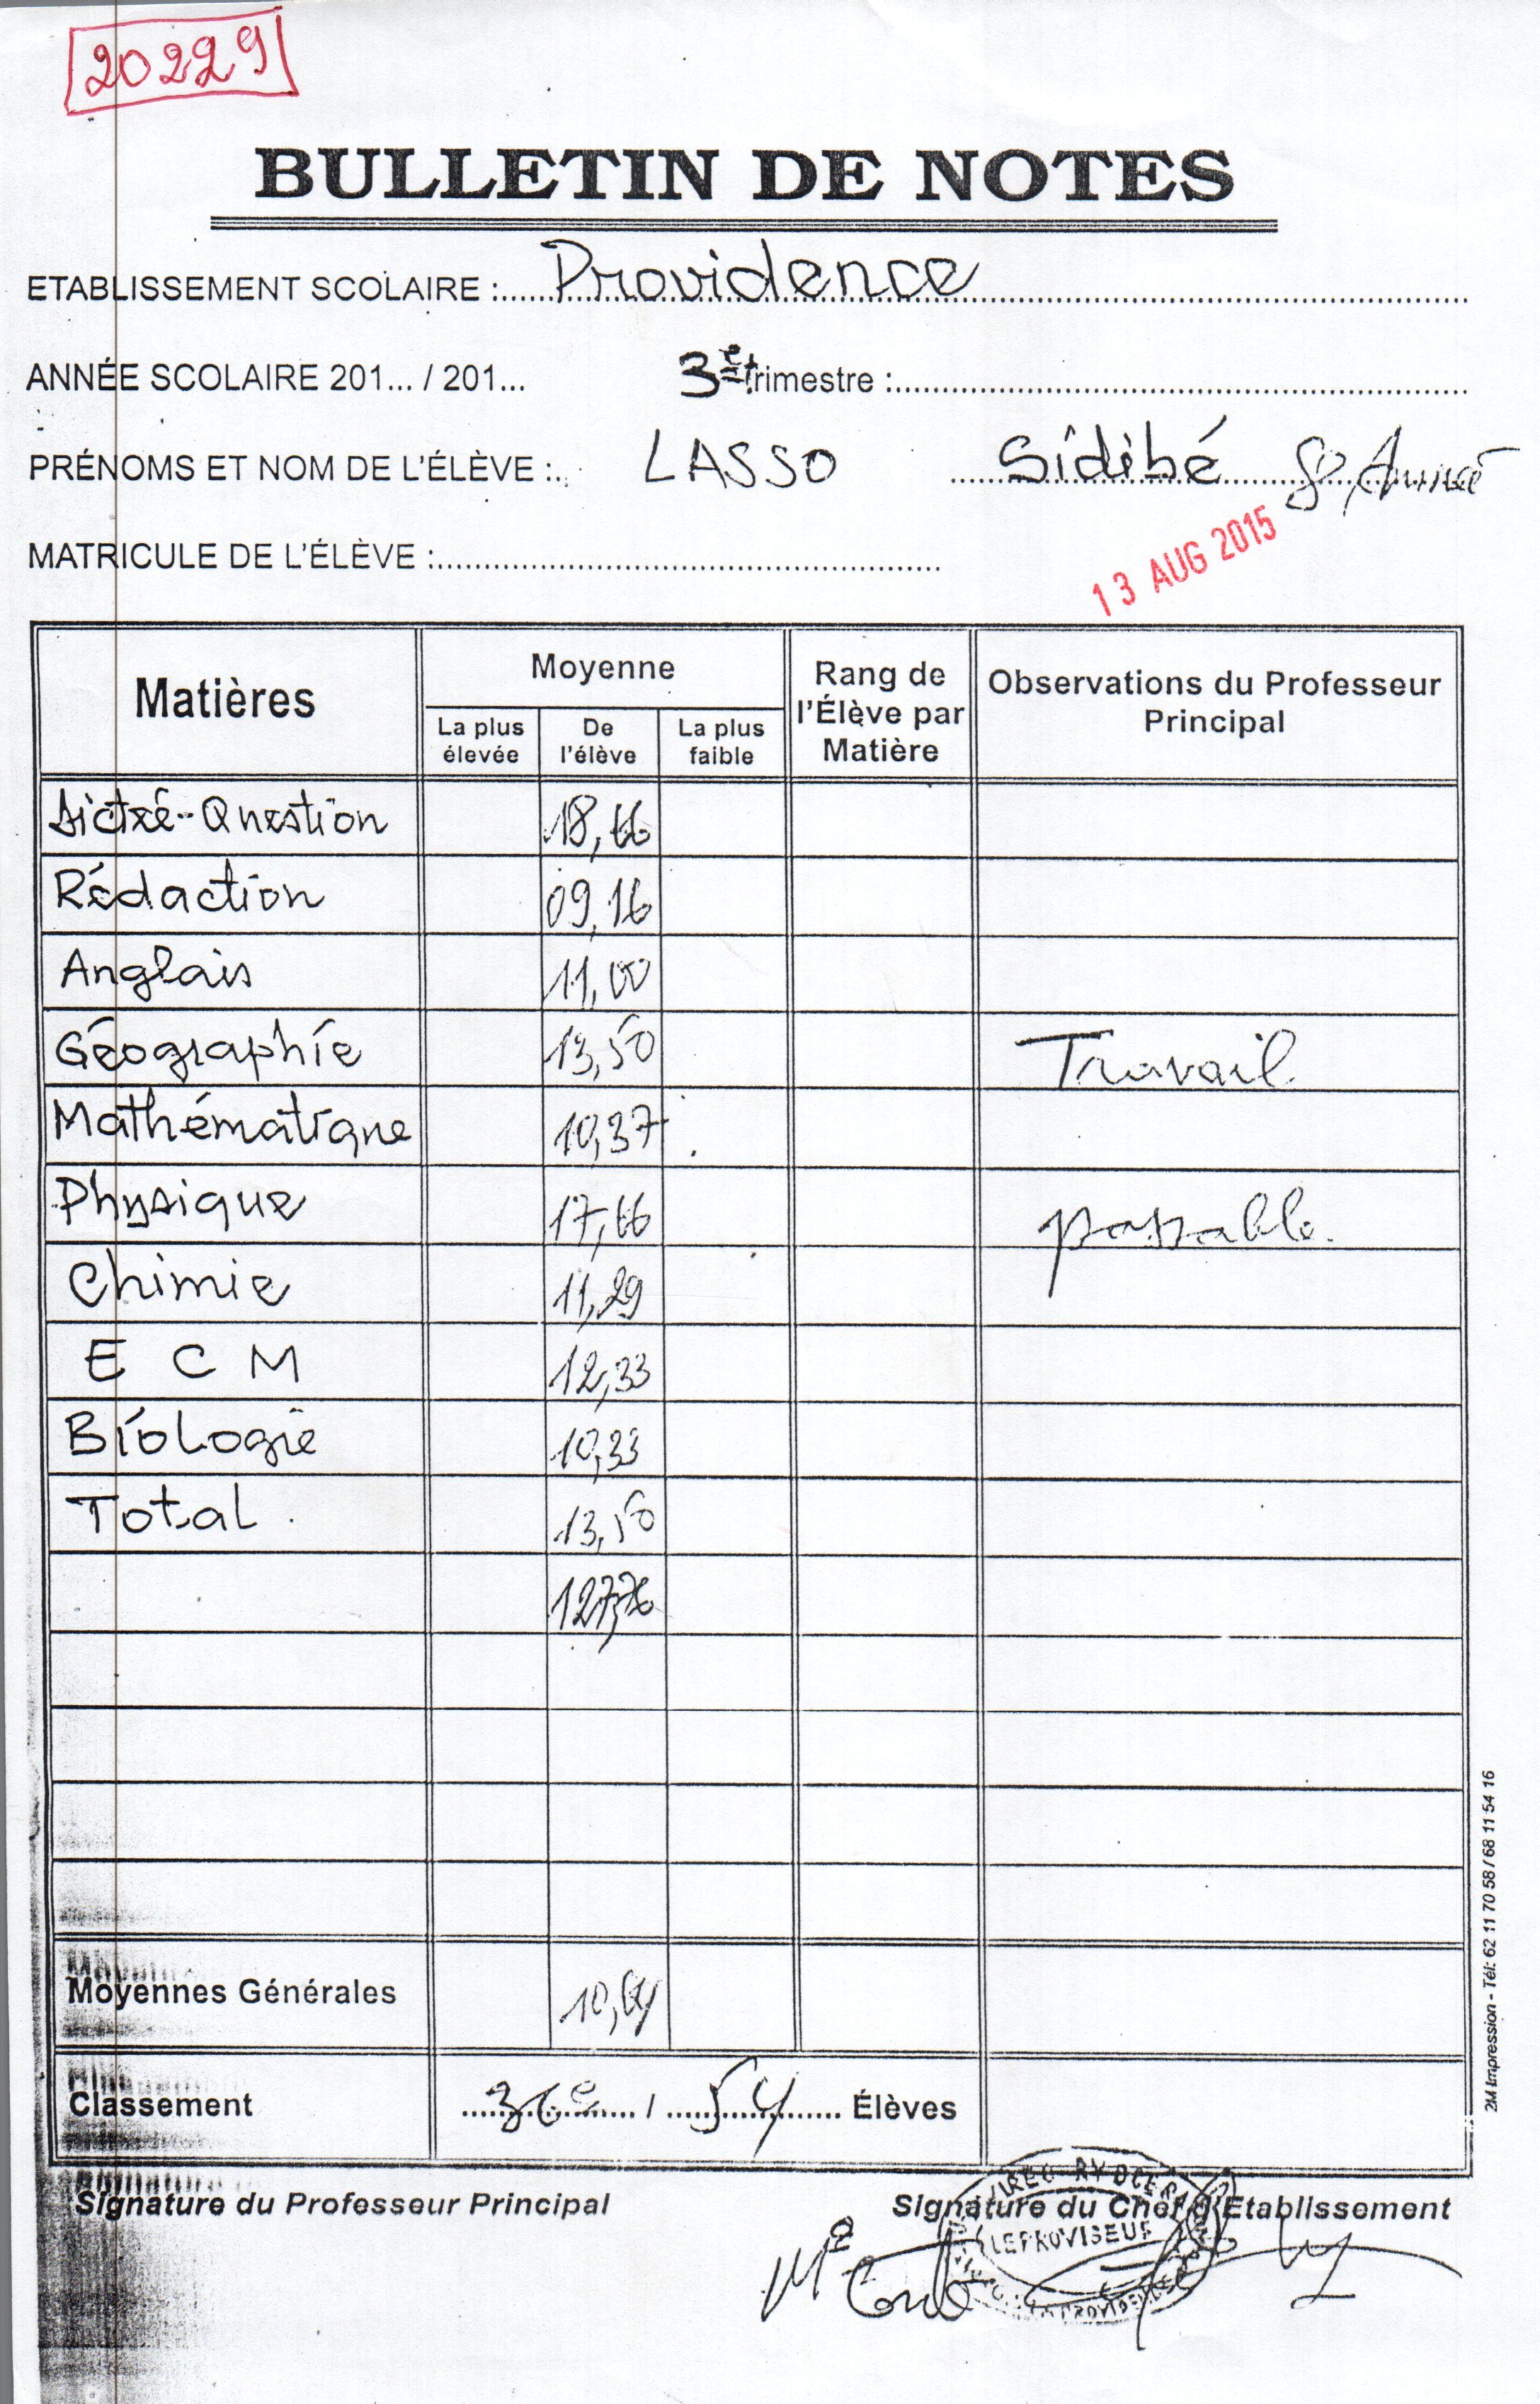 20229
BULLETIN DE NOTES
ETABLISSEMENT SCOLAIRE : Providence
ANNÉE SCOLAIRE 201... / 201... 3e trimestre :
PRÉNOMS ET NOM DE L'ÉLÈVE : LASSO Sidibé 8e Année
MATRICULE DE L'ÉLÈVE :
13 AUG 2015
Matières Moyenne Rang de l'Élève par Matière Observations du Professeur Principal
La plus élevée De l'élève La plus faible
Dictée-Question 18,66
Rédaction 09,16
Anglais 11,00
Géographie 13,50 Travail
Mathématique 10,37
Physique 17,66 passable.
Chimie 11,29
E C M 12,33
Biologie 10,33
Total 13,50
127,76
Moyennes Générales 10,64
Classement 36e / 54 Élèves
Signature du Professeur Principal Signature du Chef d'Etablissement
LE PROVISEUR
2M Impression - Tél: 62 11 70 58 / 68 11 54 16